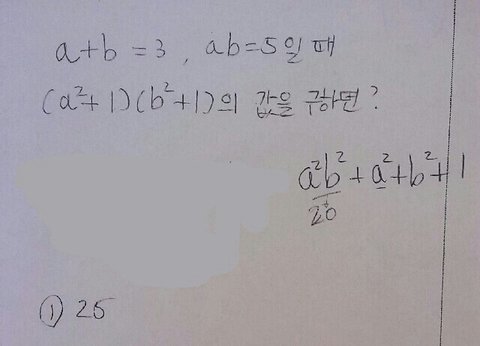 a+b=3, ab=5일 때
(a²+1)(b²+1)의 값을 구하면?
a²b²+a²+b²+1
① 25